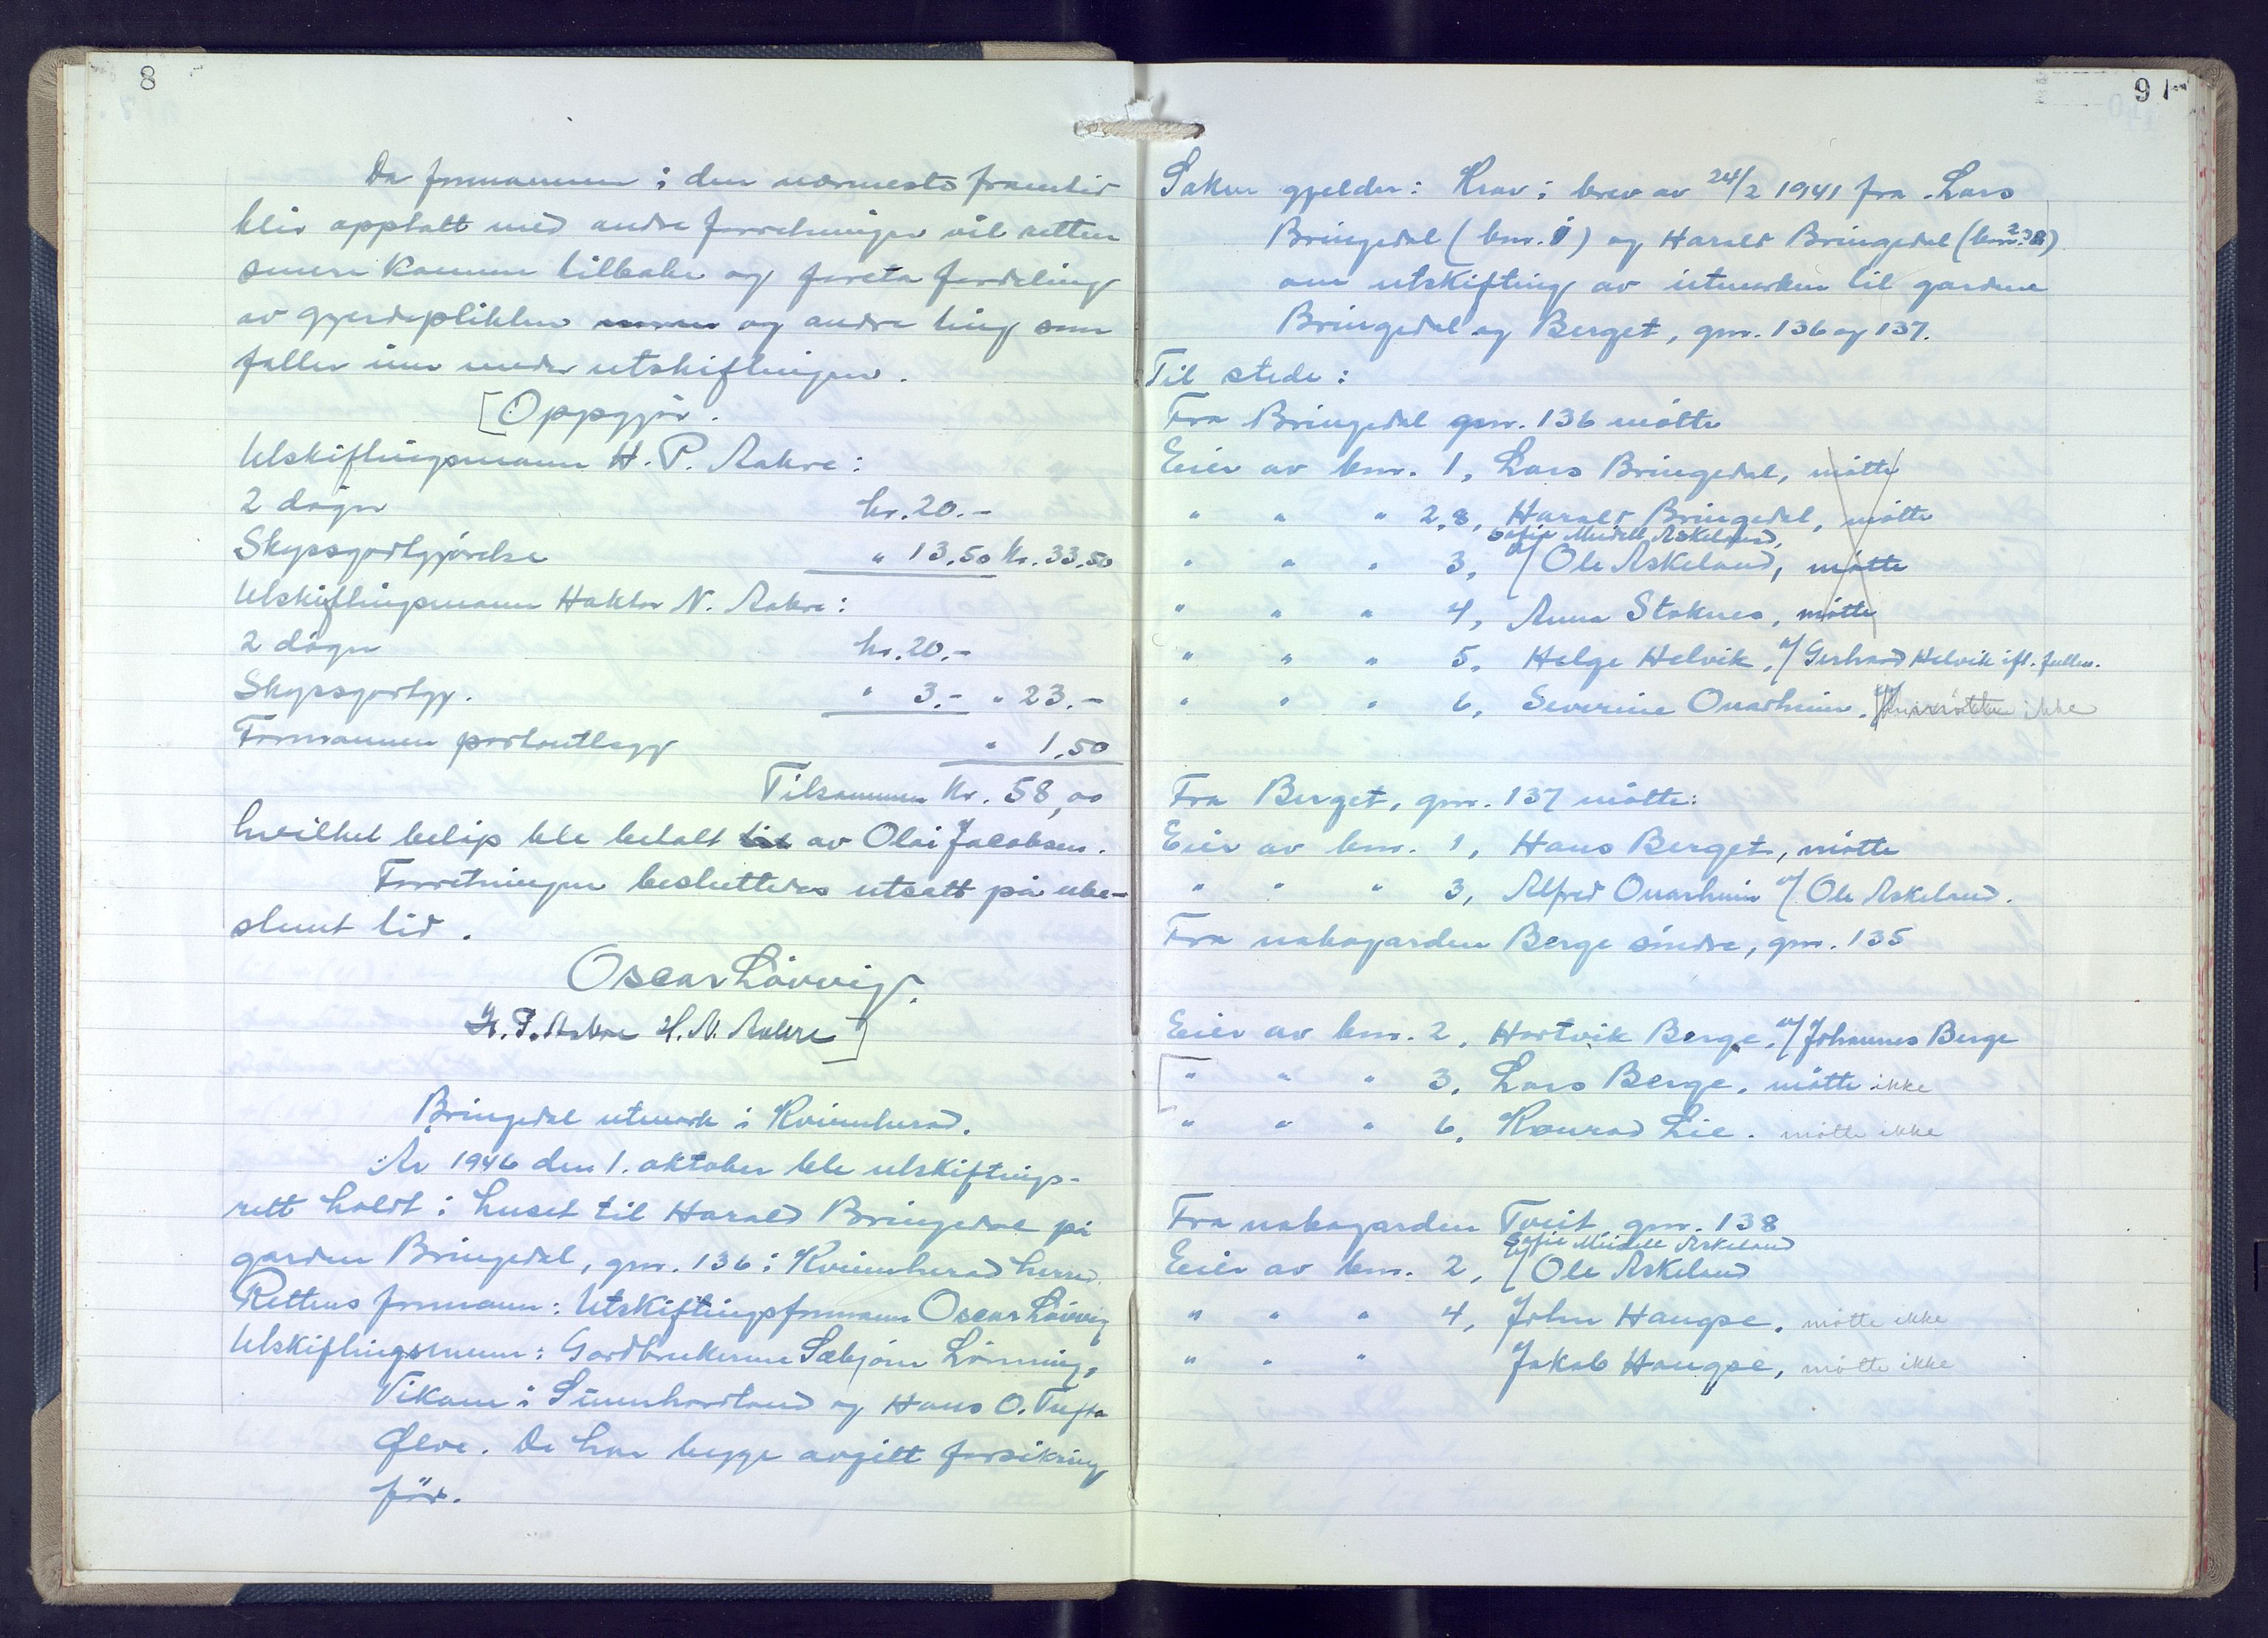 8
Da formannen i den nærmeste framtid
blir opptatt med andre forretninger vil retten
senere komme tilbake og foreta fordeling
av gjerdeplikten og andre ting som
faller inn under utskiftingen.
[Oppgjør.
Utskiftingsmann H. P. Aakre:
2 døgn kr. 20.-
Skyssgodtgjørelse " 13,50 kr. 33,50
Utskiftingsmann Haktor N. Aakre:
2 døgn kr. 20.-
Skyssgodtgj. " 3.- " 23.-
Formannen portoutlegg " 1,50
Tilsammen kr. 58,00
hvilket beløp ble betalt av Olai Jacobsen.
Forretningen besluttedes utsatt på ube-
stemt tid.
Oscar Løvvig.
H. P. Aakre H. N. Aakre]
Bringedal utmark i Kvinnherad.
År 1946 den 1. oktober ble utskiftings-
rett holdt i huset til Harald Bringedal på
garden Bringedal, gnr. 136 i Kvinnherad herred.
Rettens formann: Utskiftingsformann Oscar Løvvig
Utskiftingsmenn: Gardbrukerne Sæbjørn Lønning,
Vikane i Sunnhordland og Hans O. Tufta
Ølve. De har begge avgitt forsikring
før.
9
Saken gjelder: Krav i brev av 24/2 1941 fra Lars
Bringedal (bnr. 1) og Harald Bringedal (bnr. 2, 8)
om utskifting av utmarken til gardene
Bringedal og Berget, gnr. 136 og 137.
Til stede:
Fra Bringedal gnr. 136 møtte
Eier av bnr. 1, Lars Bringedal, møtte
" " " 2,8, Harald Bringedal, møtte
Sofie Meidell Askeland,
" " " 3, v/ Ole Askeland, møtte
" " " 4, Anna Stoknes, møtte
" " " 5, Helge Helvik, v/ Gerhard Helvik ifl. fullm.
" " " 6, Severine Onarheim, møtte ikke
Fra Berget, gnr. 137 møtte:
Eier av bnr. 1, Hans Berget, møtte
" " " 3, Alfred Onarheim v/ Ole Askeland.
Fra nabogarden Berge søndre, gnr. 135
Eier av bnr. 2, Hartvik Berge, v/ Johannes Berge
[" " " 3, Lars Berge, møtte ikke
" " " 6, Konrad Lie. møtte ikke
Fra nabogarden Tveit gnr. 138
Sofie Meidell Askeland
Eier av bnr. 2, v/ Ole Askeland
" " " 4, John Haugse, møtte ikke
" " " Jakob Haugse, møtte ikke